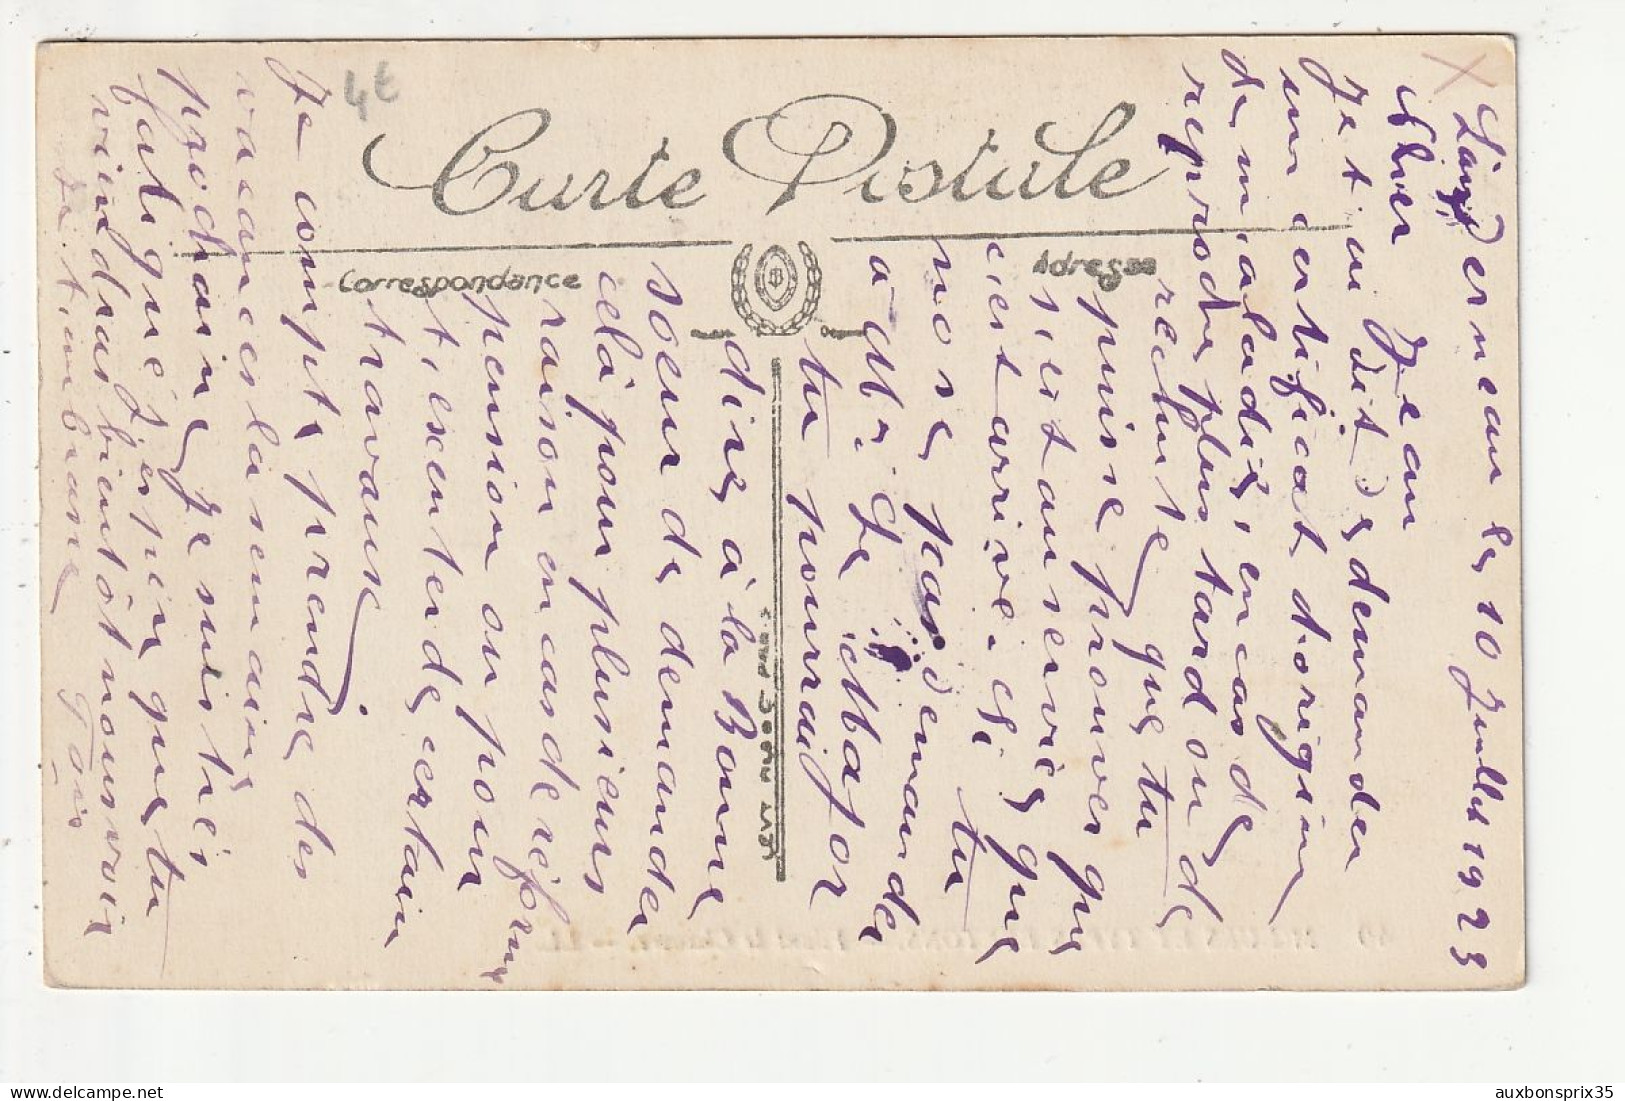 Landerneau le 10 Juillet 1923
Cher Jean
Je t'ai dit de demander
un certificat d'origine
de maladie, en cas de
reproche plus tard ou de
rechute que tu
puisse prouver que
s'est au service que
c'est arrivé. si tu
n'ose pas demander
à Mr Le
tu pourrais
dire à la Bonne
soeur de demander
cela pour plusieurs
raison en cas de réforme
pension ou pour
t'exenter de certain
travaux.
Je compte prendre des
vacances la semaine
prochaine je suis très
fatigué j'espère que tu
viendras bientôt nous voir
Je t'embrasse
Carte Postale
Correspondance
Adresse
4€
auxbonsprix35